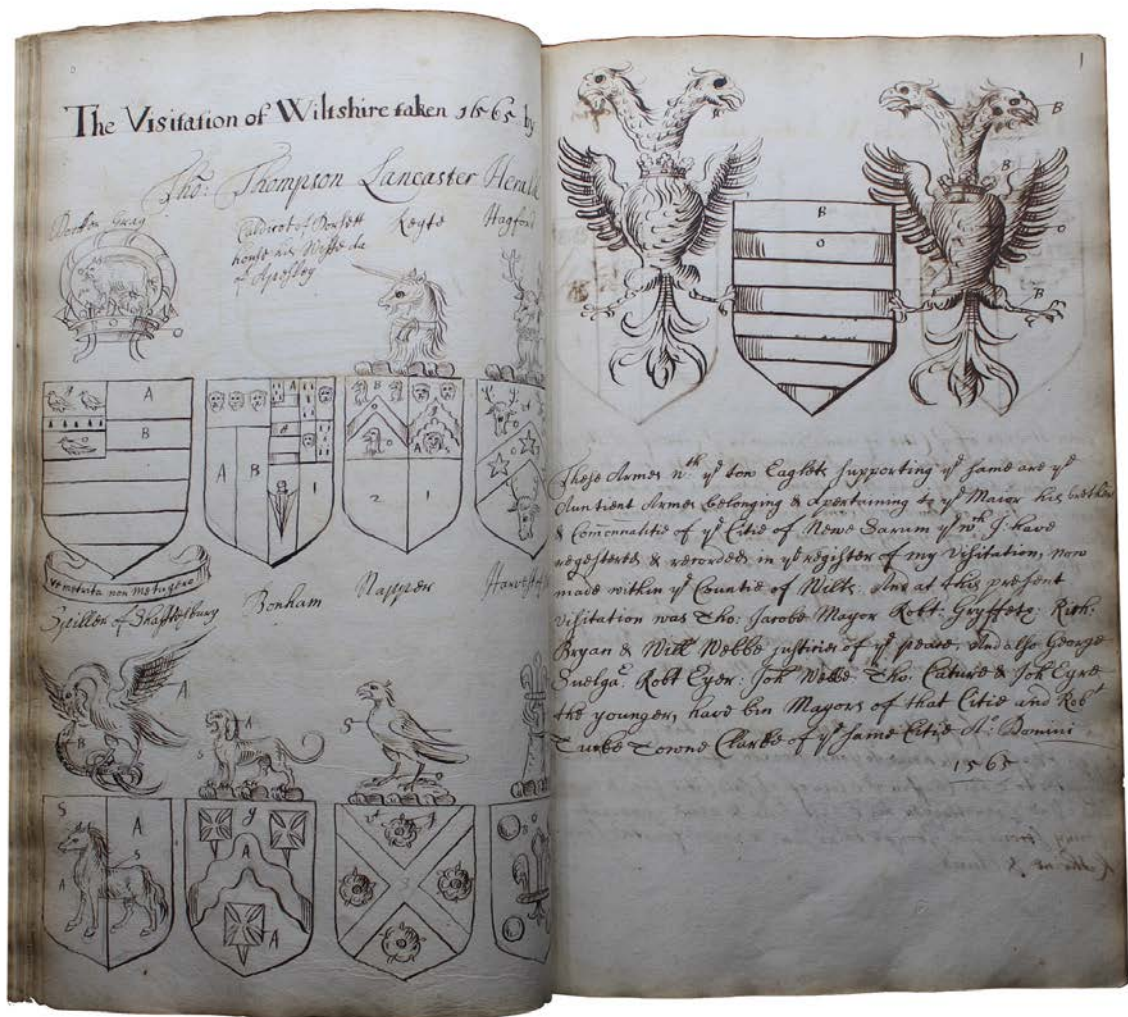 The Visitation of Wiltshire taken 1565 by
Tho: Thompson Lancaster Herald
Docktor Gray
Caldicot of Dorsett
house his Wiffe da
of Apesley
Keyte
Hagford
O
A
B
A
B
A
1
B
2
1
Spiller of Shaftesbury
Bonham
Napper
A
B
A
S
S
S
A
S
A
A
A
1
B
O
B
B
O
B
These Armes wth ye tow Eaglets supporting ye same are ye
Auntient Armes belonging & apertaining to ye Maior his brethren
& Comonnaltie of ye Citie of Newe Sarum ye wth J: have
regestered & recorded in ye register of my visitation, now
made within ye Countie of Wilts. And at this present
visitation was Tho: Jacobe Mayor Robt: Gryffete: Rich:
Bryan & Will Webbe justices of ye peace, And also George
Robt Eyer: Joh Webbe Tho: & Joh Eyre
the younger, have bin Mayors of that Citie and Robt
Towne Clarke of ye same Citie Ao: Domini
1565